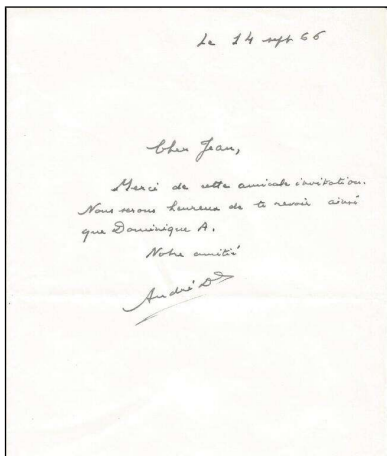 Le 14 sept 66
Cher Jean,
Merci de cette amicale invitation.
Nous serons heureux de te revoir ainsi
que Dominique A.
Notre amitié
André D